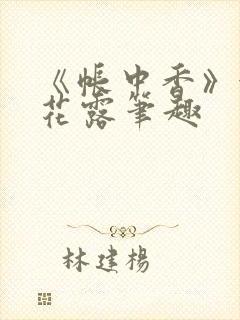 《帐中香》
花露笔趣
林建杨